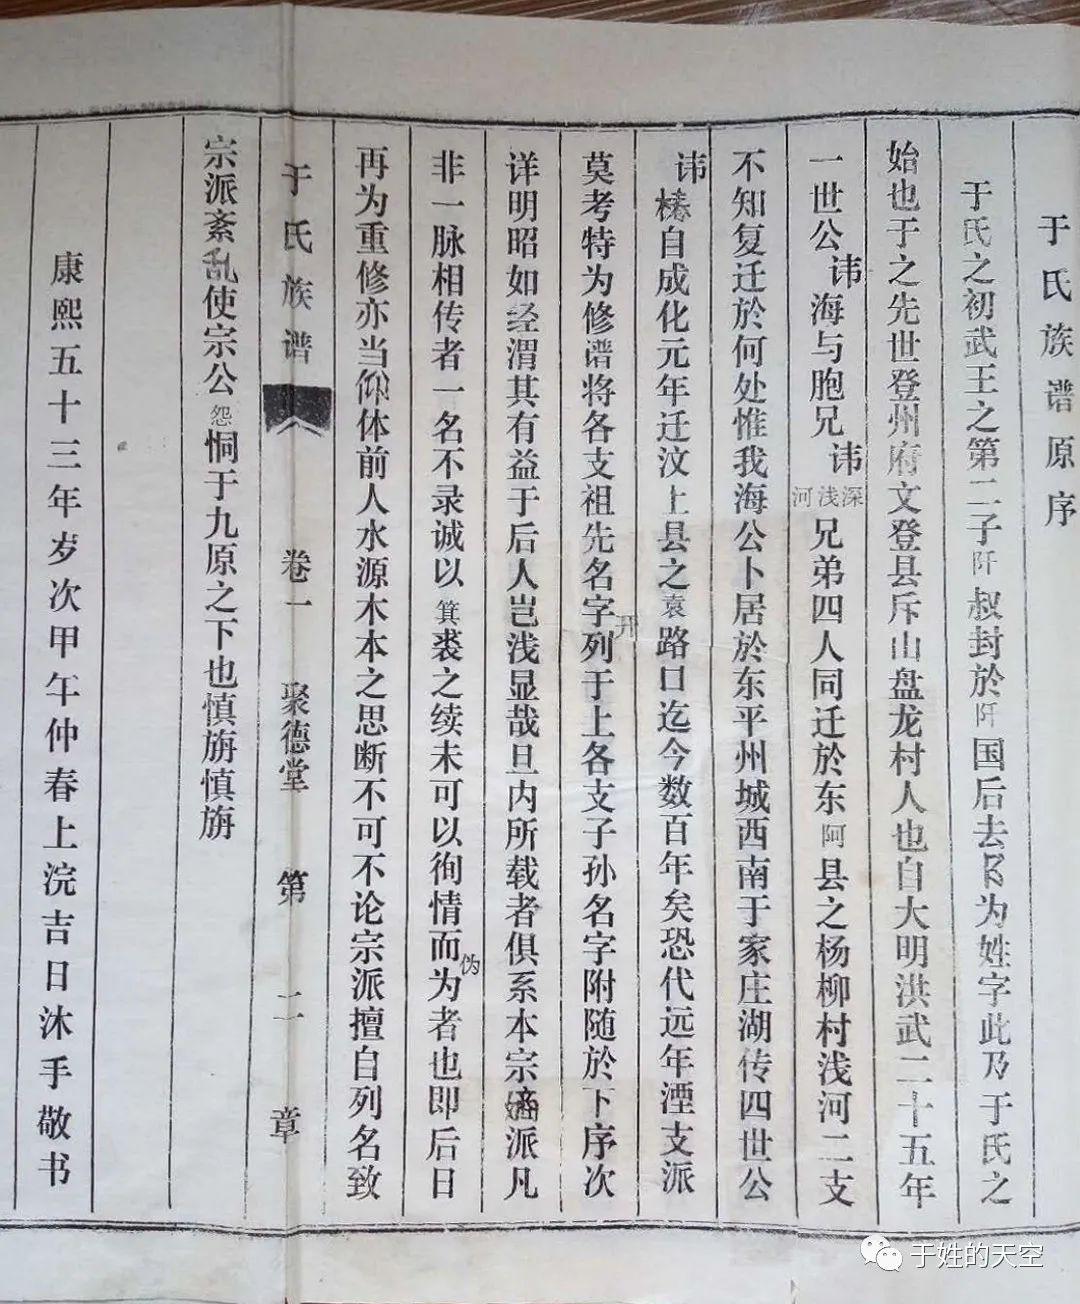 于氏族谱原序
于氏之初武王之第二子阡叔封於阡国后去阝为姓字此乃于氏之
始也于之先世登州府文登县斥山盘龙村人也自大明洪武二十五年
一世公讳海与胞兄讳深浅河兄弟四人同迁於东阿县之杨柳村浅河二支
不知复迁於何处惟我海公卜居於东平州城西南于家庄湖传四世公
讳椿自成化元年迁汶上县之袁路口迄今数百年矣恐代远年湮支派
莫考特为修谱将各支祖先名字开列于上各支子孙名字附随於下序次
详明昭如经渭其有益于后人岂浅显哉旦内所载者俱系本宗嫡派凡
非一脉相传者一名不录诚以箕裘之续未可以徇情而伪为者也即后日
再为重修亦当仰体前人水源木本之思断不可不论宗派擅自列名致
于氏族谱 卷一 聚德堂 第二章
宗派紊乱使宗公怨恫于九原之下也慎旃慎旃
康熙五十三年岁次甲午仲春上浣吉日沐手敬书
于姓的天空